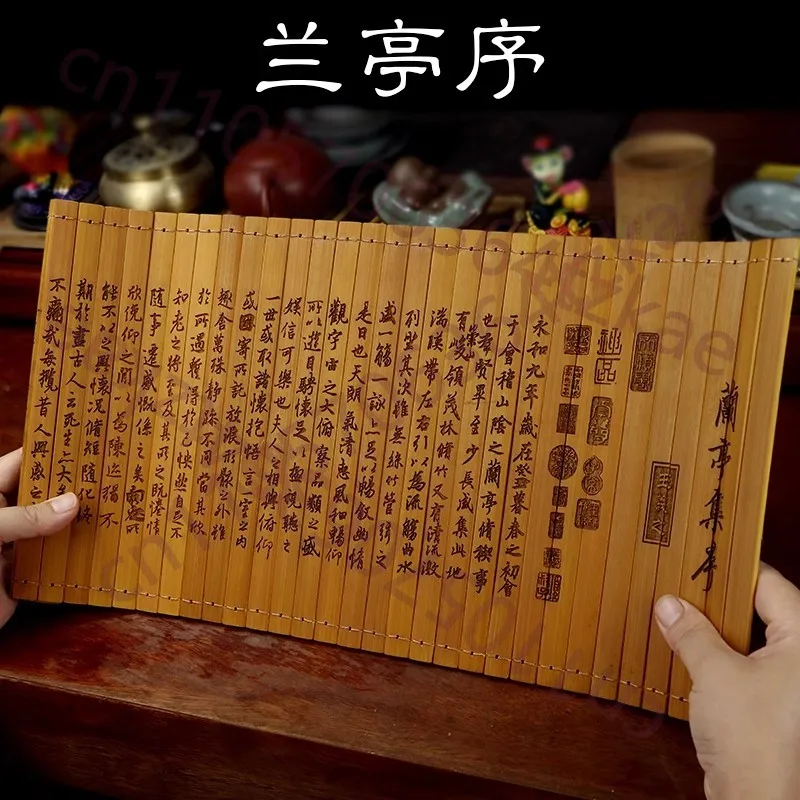 兰亭序
蘭亭集序
永和九年歲在癸丑暮春之初會
于會稽山陰之蘭亭脩禊事
也羣賢畢至少長咸集此地
有崇山峻領茂林脩竹又有清流激
湍暎帶左右引以為流觴曲水
列坐其次雖無絲竹管弦之
盛一觴一詠上足以暢叙幽情
是日也天朗氣清惠風和暢仰
觀宇宙之大俯察品類之盛
所以遊目騁懷足以極視聽之
娛信可樂也夫人之相與俯仰
一世或取諸懷抱悟言一室之內
或因寄所託放浪形骸之外雖
趣舍萬殊靜躁不同當其欣
於所遇蹔得於己怏然自足不
知老之將至及其所之既惓情
隨事遷感慨係之矣向之所
欣俛仰之間以為陳迹猶不
能不以之興懷況脩短隨化終
期於盡古人云死生亦大矣
不痛哉每攬昔人興感之